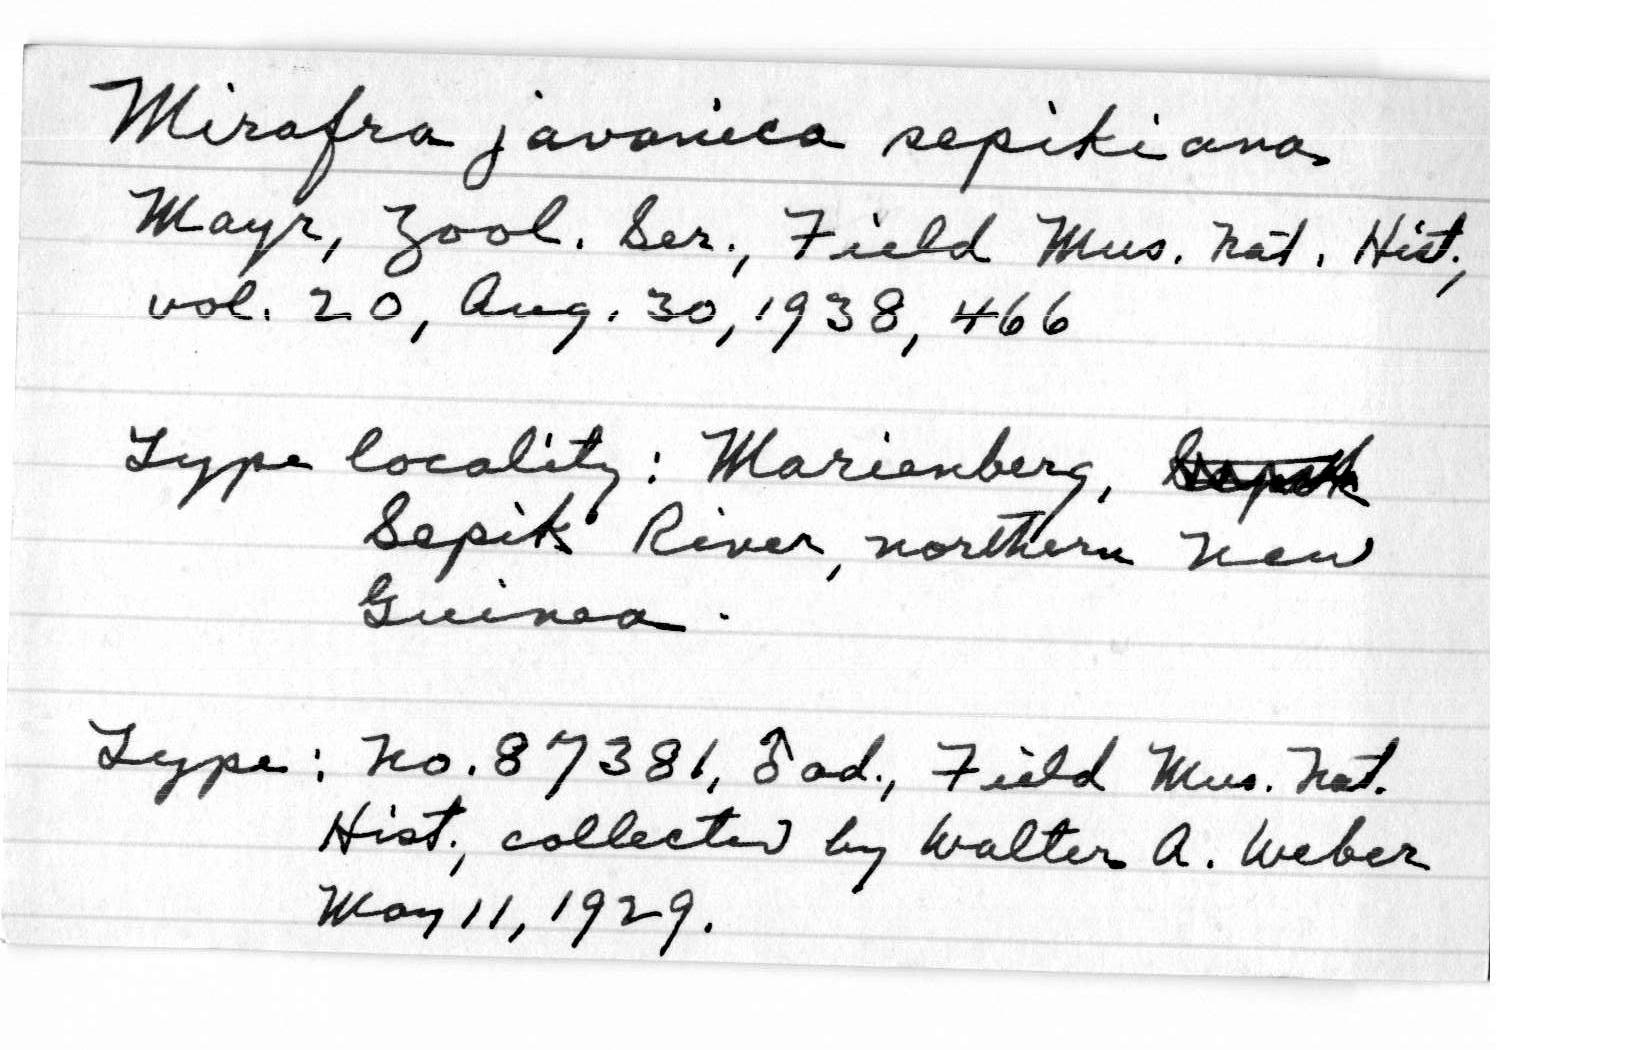 Mirafra javanica sepikiana
Mayr, Zool. Ser., Field Mus. Nat. Hist.,
vol. 20, Aug. 30, 1938, 466
Type locality: Marienberg,
Sepik River, northern New
Guinea.
Type: No. 87381, ♂ ad., Field Mus. Nat.
Hist., collected by Walter A. Weber
May 11, 1929.